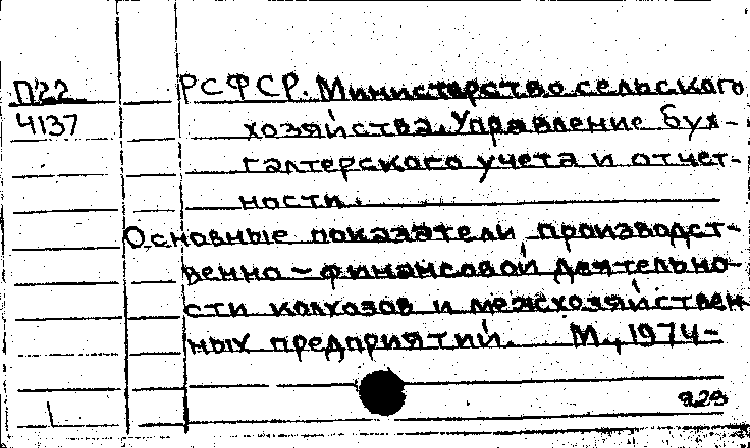 П22
РСФСР. Министерство сельского
Ч137
хозяйства. Управление бух-
галтерского учета и отчет-
ности.
Основные показатели производст-
венно-финансовой деятельно-
сти колхозов и межхозяйствен
ных предприятий. М., 1974-